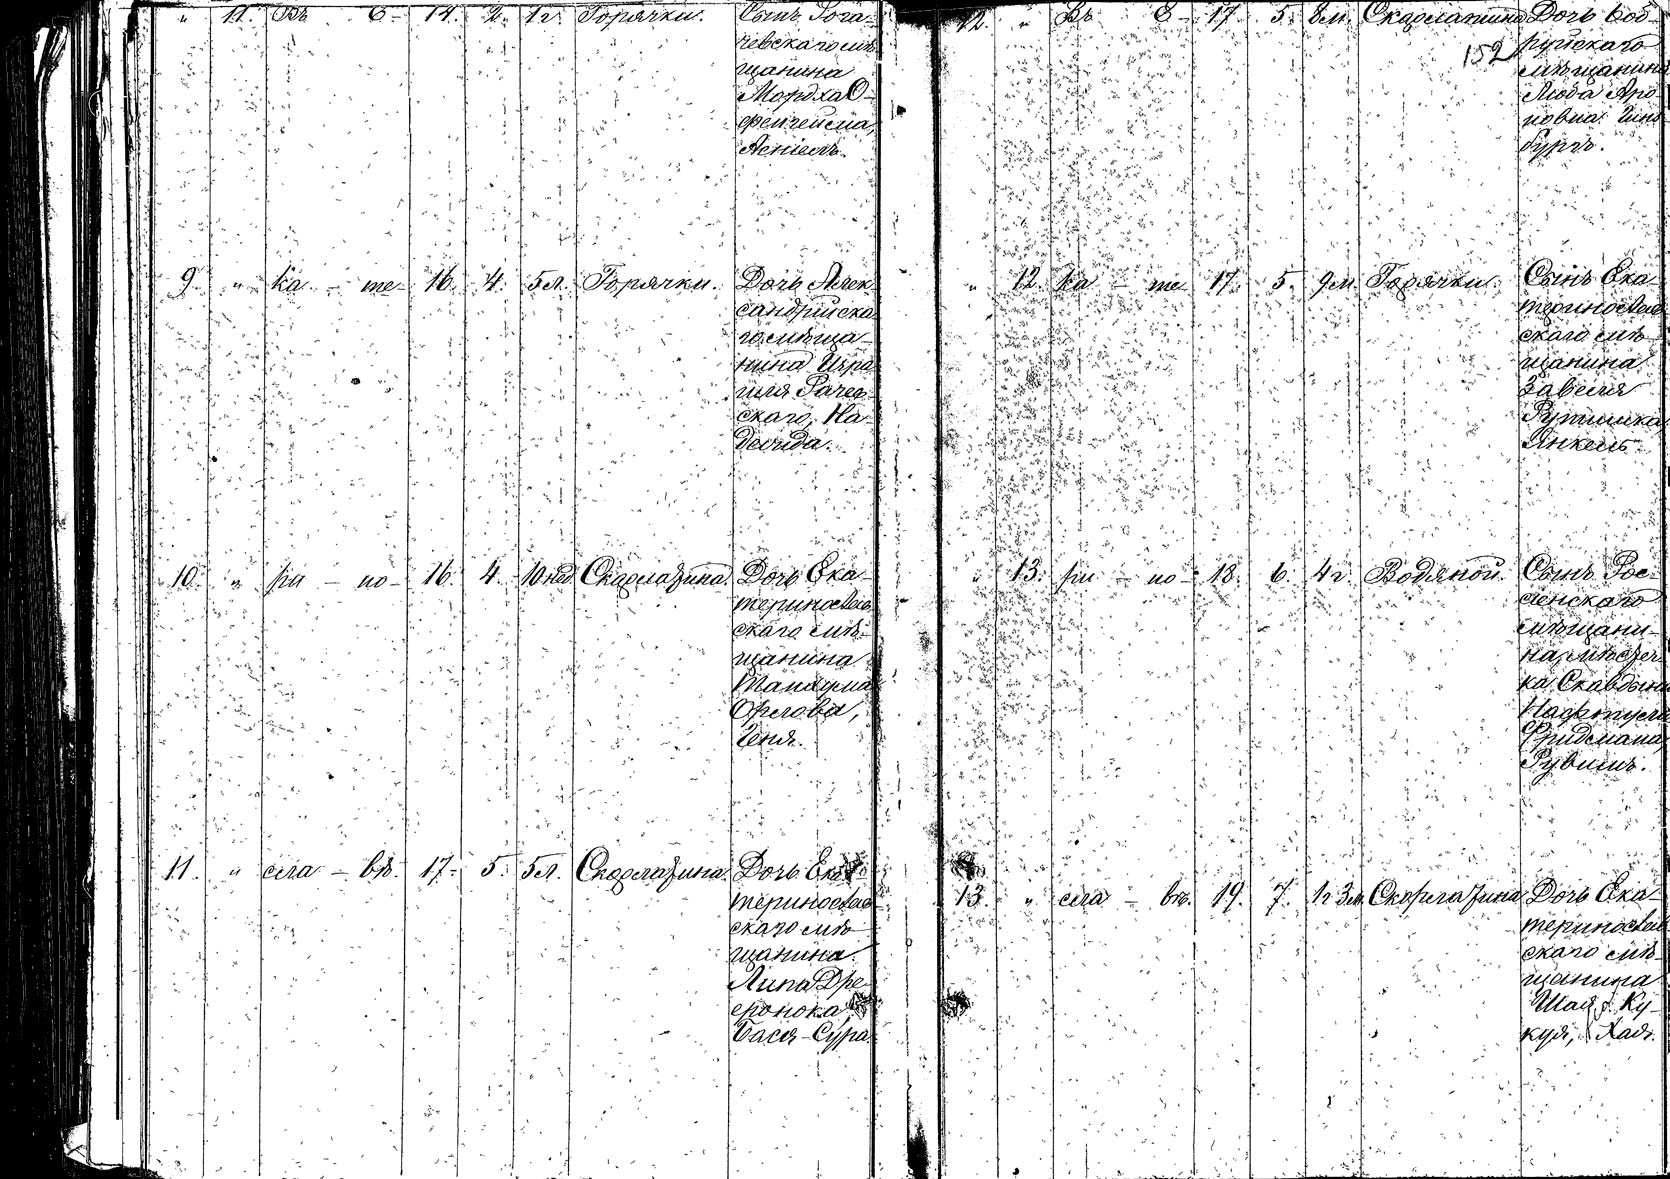 " 11. Въ Е- 14. 2. 1 г. Горячки. Сынъ Рога-
чевскаго мѣ-
щанина
Мордха О-
9. " ка - те- 16. 4. 5 л. Горячки. Дочь Алек-
сандрійска-
го мѣща-
нина Изра-
иля Рачев-
скаго, На-
дежда.
10. " ри - но- 16. 4. 10 нед. Скарлатина Дочь Ека-
теринослав-
скаго мѣ-
щанина
Танхума
Орлова,
Геня.
11. " сла - вѣ. 17. 5. 5 л. Скарлатина. Дочь Ека-
теринослав-
скаго мѣ-
щанина
Липа
Бася-Сура.
12. " Въ Е- 17. 5. 8 м. Скарлатина Дочь Боб-
152
руйскаго
мѣщанина
Люба Аро-
новна Гинз-
бургъ.
" 12. ка - те- 17. 5. 9 м. Горячки. Сынъ Ека-
теринослав-
скаго мѣ-
щанина
Завеля
Янкель.
" 13. ри - но- 18. 6. 4 г. Водяной. Сынъ Рос-
сіенскаго
мѣщани-
на, мѣстеч-
ка
Фридмана,
Рувимъ.
13. " сла - вѣ. 19. 7. 1 г. 3 м. Скарлатина Дочь Ека-
теринослав-
скаго мѣ-
щанина
Шая Ку-
куя, Хая.